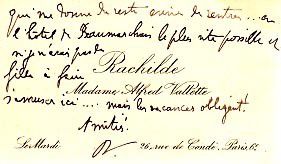 qui me donne de reste envie de rentrer... en
l'hotel de Beaumarchais le plus vite possible et
n'aurais pas de
filer à faire
Rachilde
Madame Alfred Vallette
s'amuser ici .... mais les vacances obligent!
Amitiés!
Le Mardi
R
26, rue de Condé. Paris 6e.